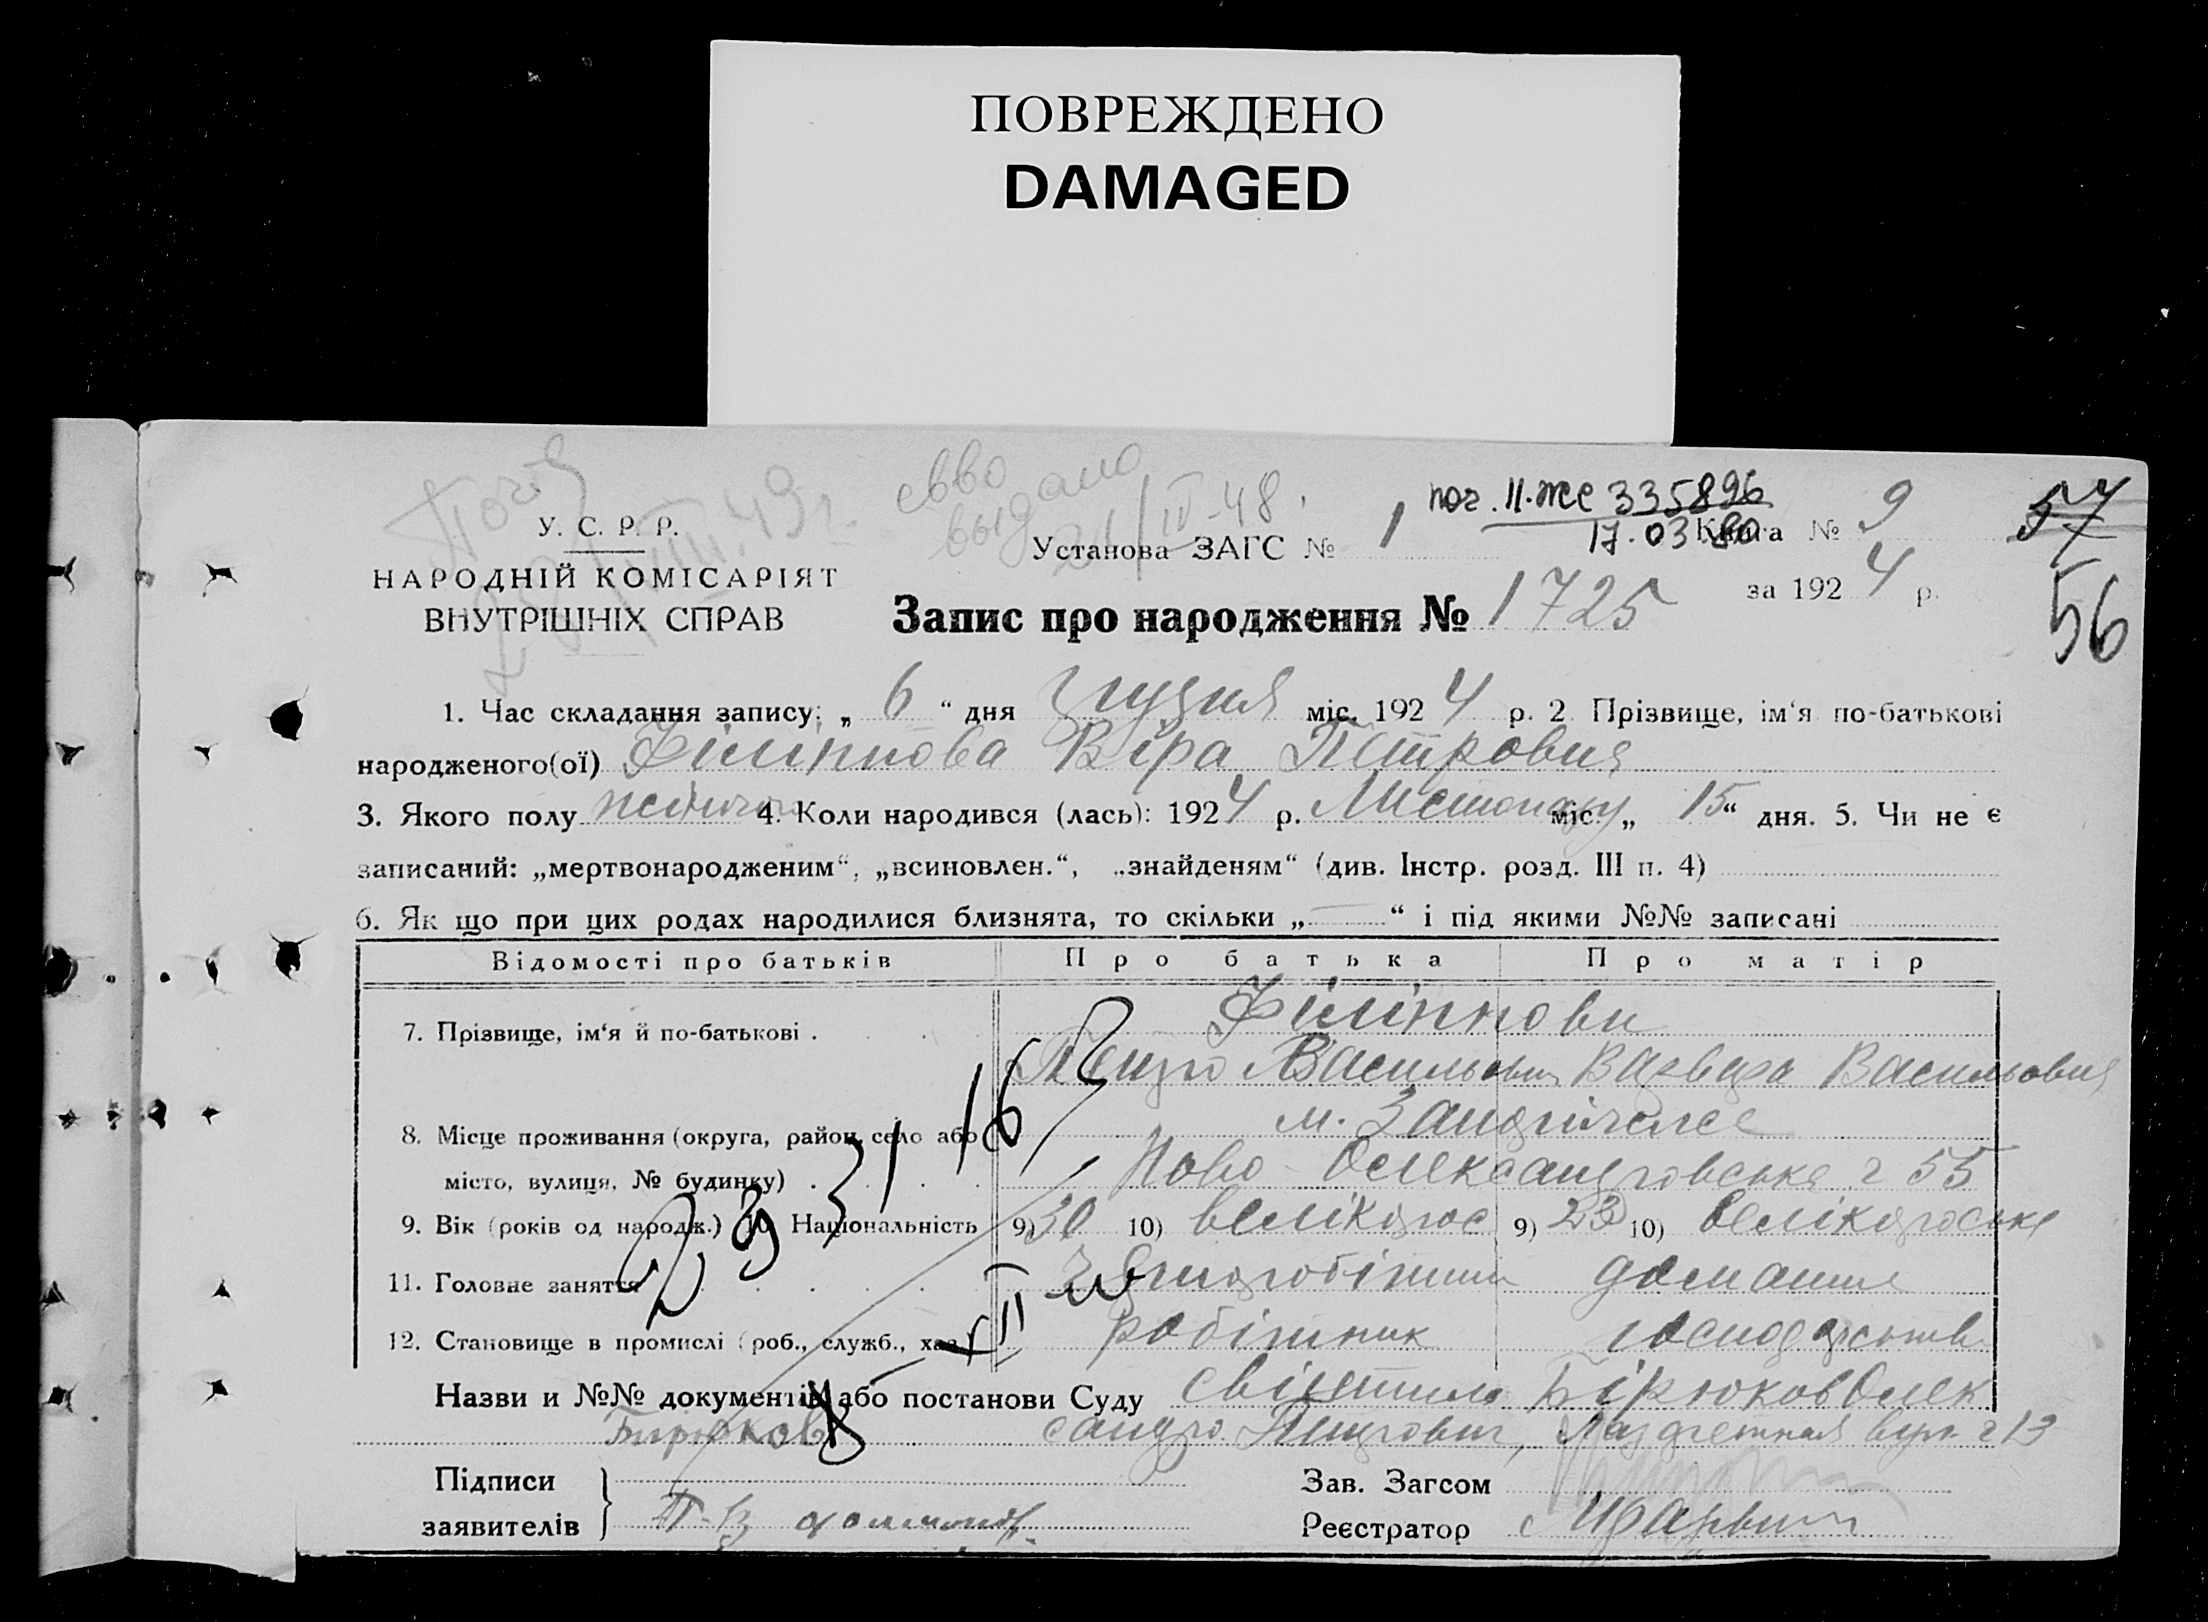 ПОВРЕЖДЕНО
DAMAGED
У. С. Р. Р.
НАРОДНІЙ КОМІСАРІЯТ
ВНУТРІШНІХ СПРАВ
св-во
выдано
21/IV-48.
пог. II-ЖС 335896
17.03.80
57
56
Установа ЗАГС № 1 Книга № 9
Запис про народження № 1725 за 1924 р.
1. Час складання запису: „ 6 “ дня грудня міс. 1924 р. 2 Прізвище, ім‘я по-батькові
народженого(ої) Філіппова Віра Петровна
3. Якого полу жіночого 4. Коли народився (лась): 1924 р. Листопаду міс. „ 15 “ дня. 5. Чи не є
записаний: „мертвонародженим“, „всиновлен.“, „знайденям“ (див. Інстр. розд. III п. 4)
6. Як що при цих родах народилися близнята, то скільки „ — “ і під якими №№ записані
Відомості про батьків Про батька Про матір
Філіппови
7. Прізвище, ім‘я й по-батькові .
Петро Васильович Варвара Васильовна
8. Місце проживання (округа, район, село або м. Запоріжжє
місто, вулиця, № будинку) . Ново Олександровська 55
9. Вік (років од народж.) 10. Національність 9) 30 10) велікорос 9) 23 10) велікороська
11. Головне заняття домашнє
12. Становище в промислі (роб., служб., хаз.) робітник господарство
Назви и №№ документів або постанови Суду свідетель Бірюков Олек
Бирюков сандр Петрович, вул. 13
Підписи
заявителів
Зав. Загсом
Реєстратор